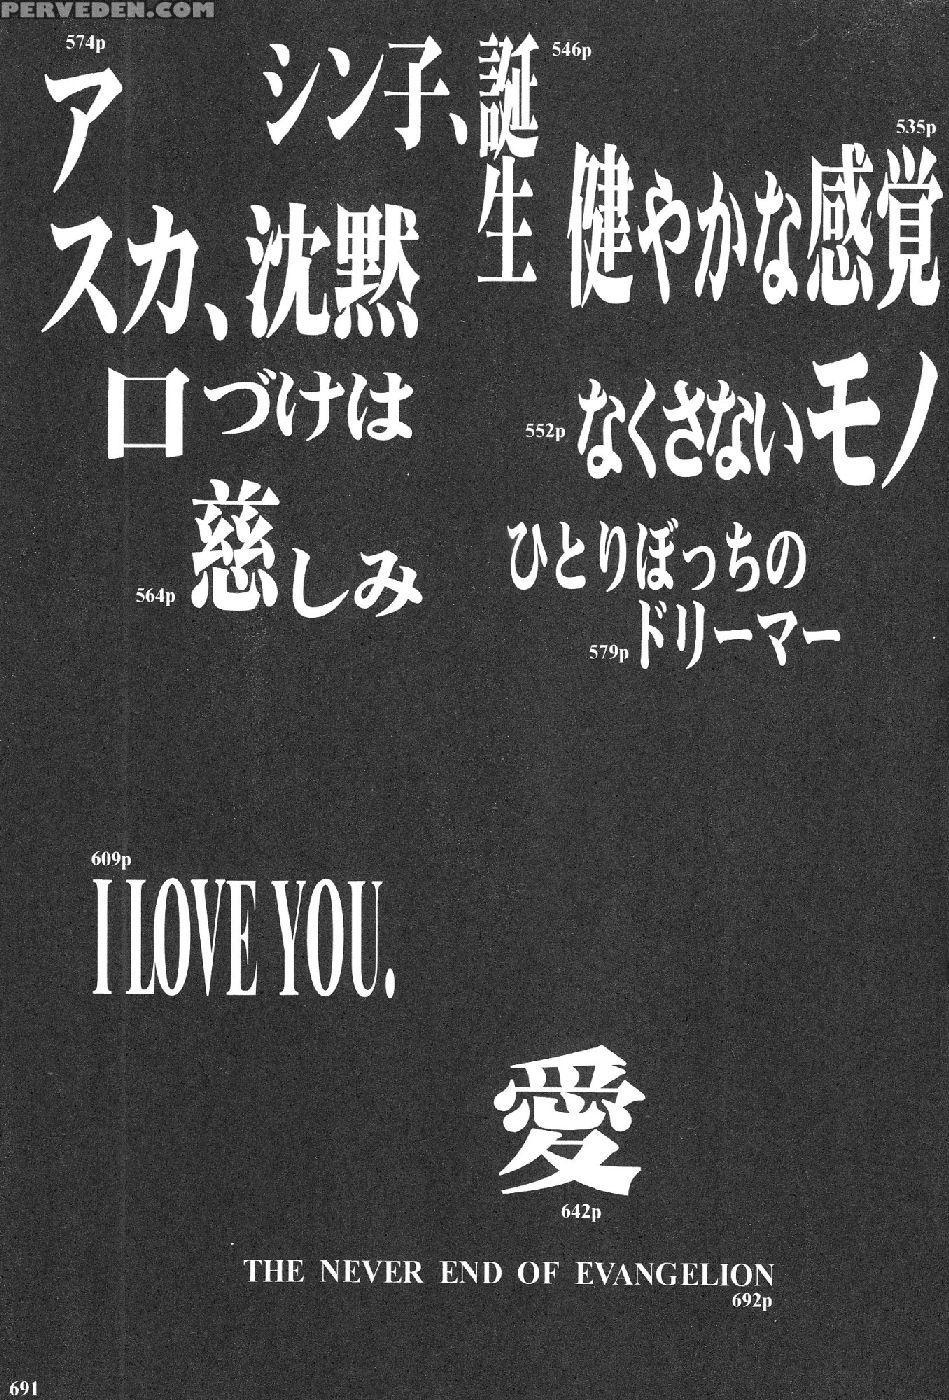 PERVEDEN.COM
574p
アスカ、沈黙
シン子、誕生
546p
535p
健やかな感覚
口づけは
慈しみ
564p
552p
なくさないモノ
ひとりぼっちの
ドリーマー
579p
609p
I LOVE YOU.
愛
642p
THE NEVER END OF EVANGELION
692p
691